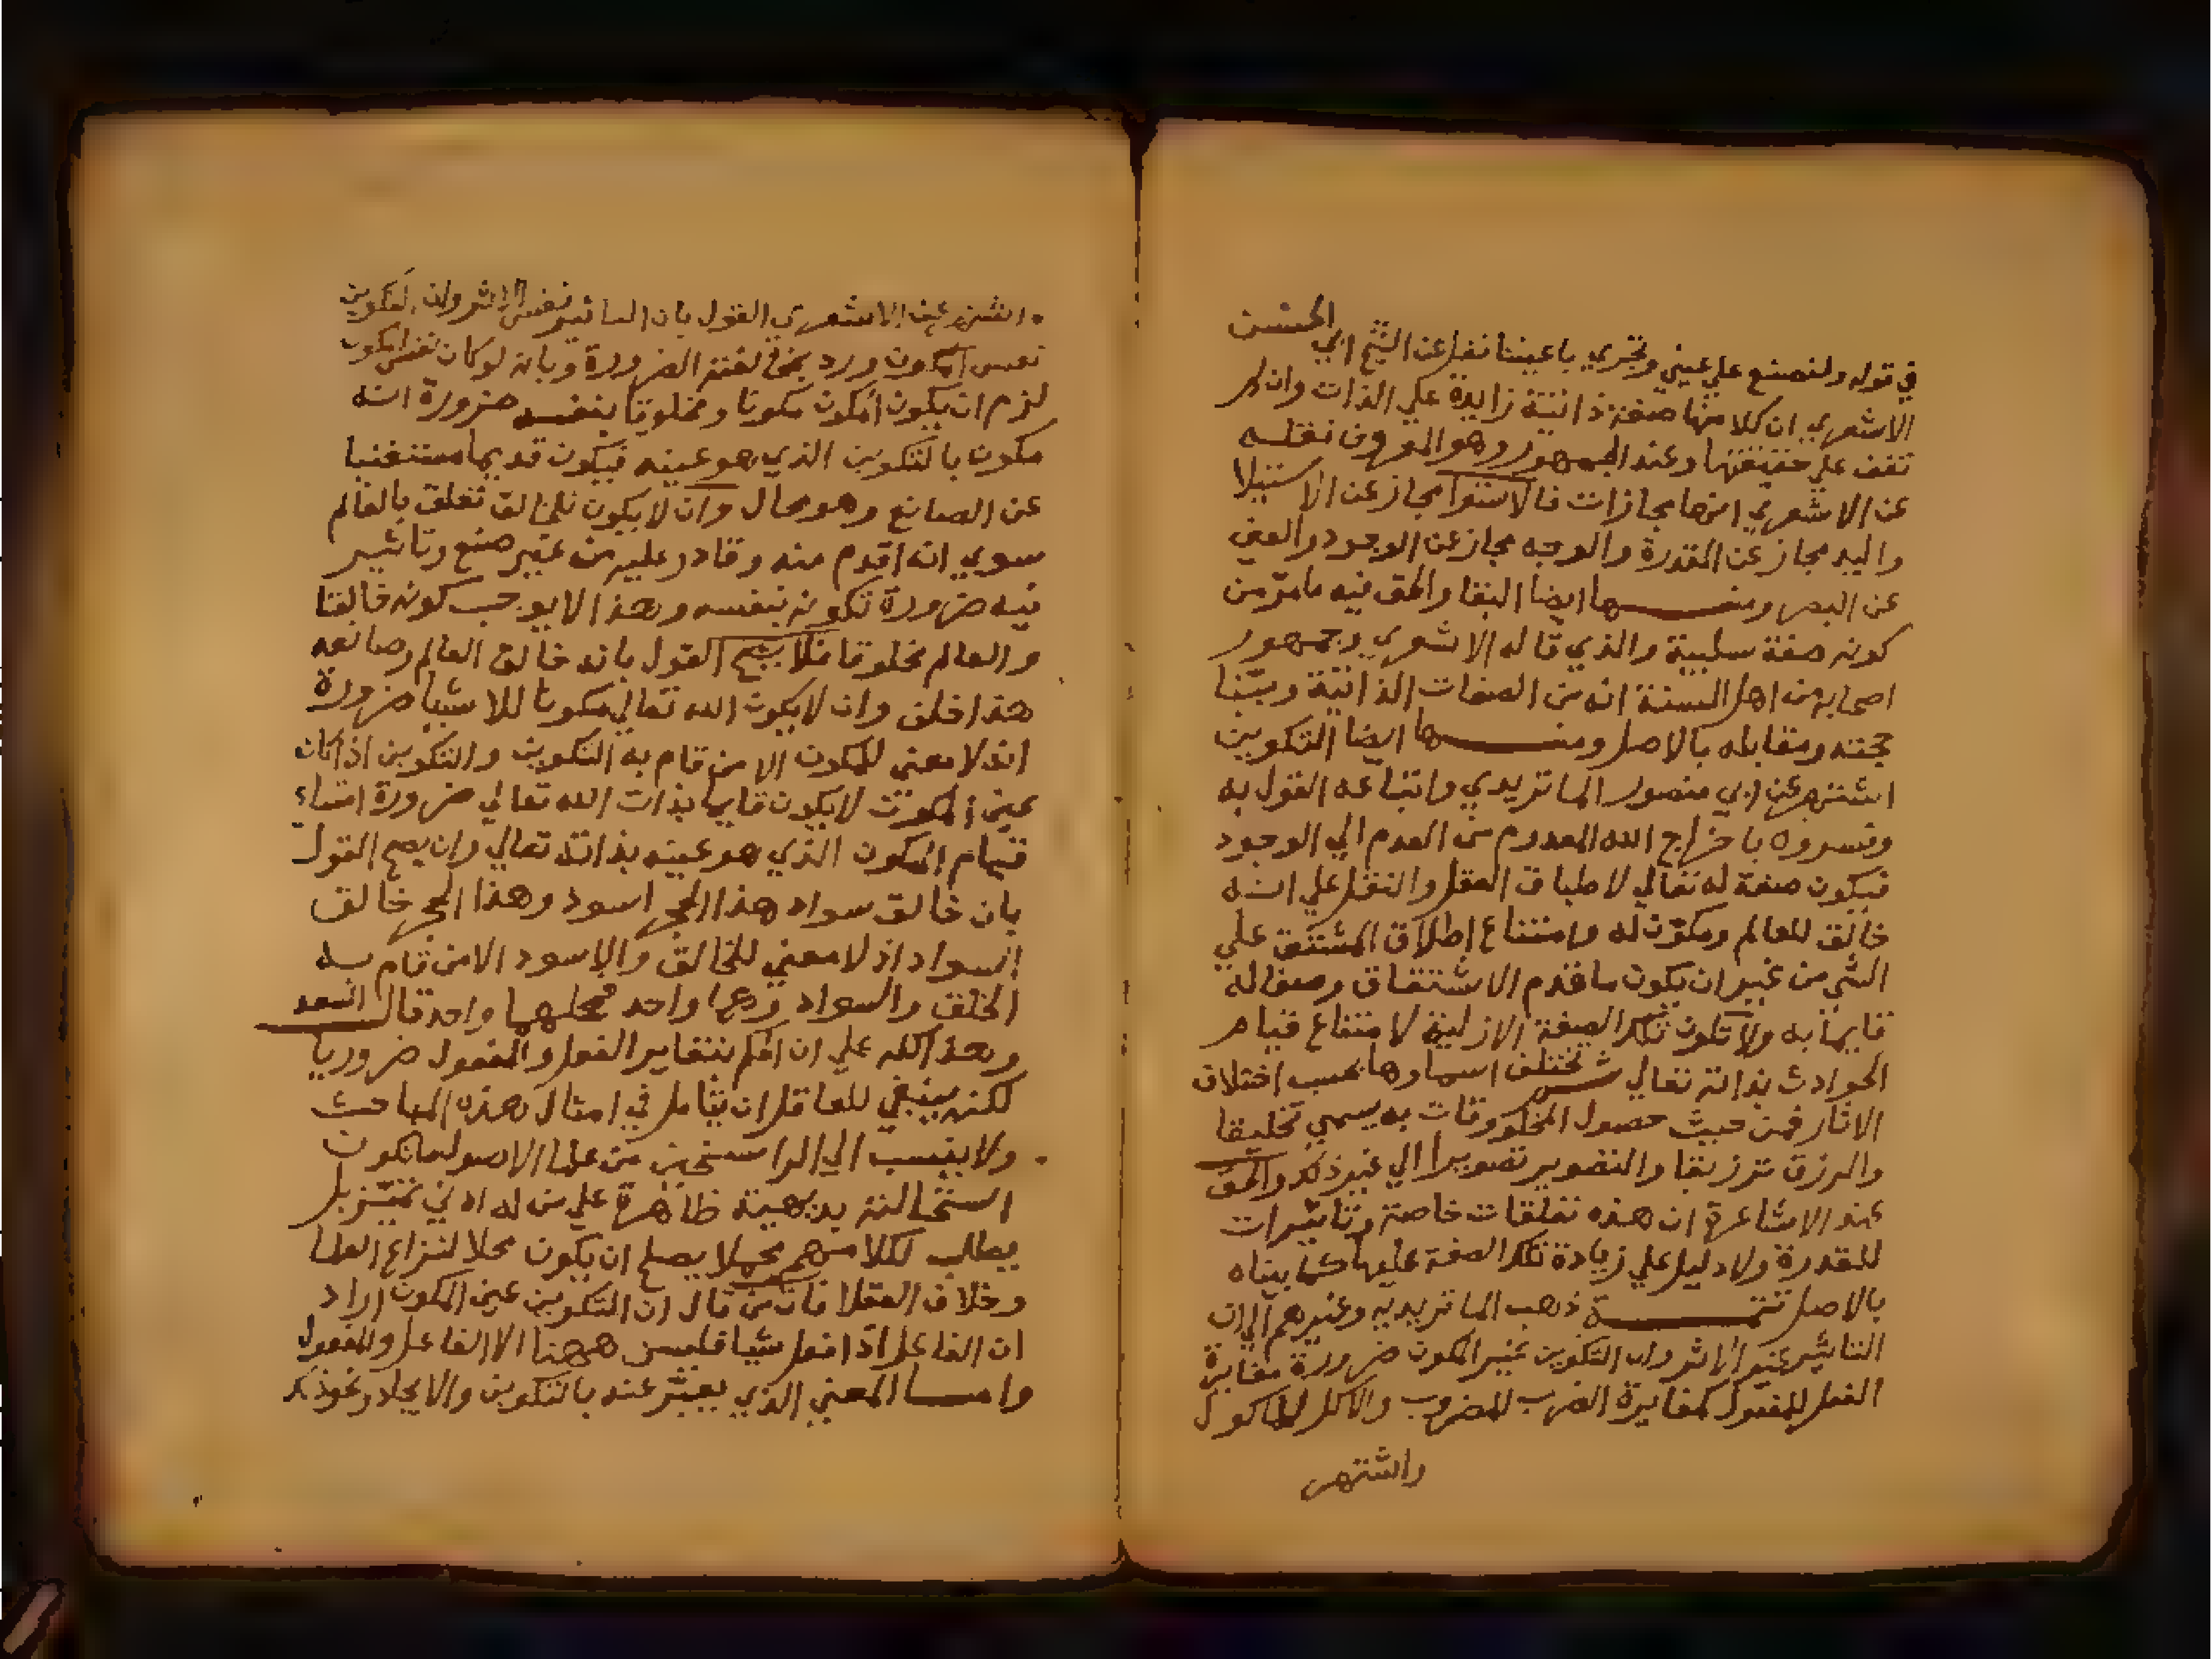 في قوله ولتصنع علي عيني وتجري باعيننا نقل عن الشيخ ابي الحسن
الاشعري ان كلا منها صفة ذاتية زايدة علي الذات وان لم
تقف علي حقيقتها وعند الجمهور وهو المعروف نقله
عن الاشعري انها مجازات فالاستوا مجاز عن الاستيلا
واليد مجاز عن القدرة والوجه مجاز عن الوجود والعين
عن البصر ومنها ايضا البقا والحق فيه ما مر من
كونه صفة سلبية والذي قاله الاشعري وجمهور
اصحابه من اهل السنة انه من الصفات الذاتية وبينا
حجته ومقابله بالاصل ومنها ايضا التكوين
اشتهر عن ابي منصور الماتريدي واتباعه القول به
وفسروه باخراج الله المعدوم من العدم الي الوجود
فيكون صفة له تعالي لاطباق العقل والنقل علي انه
خالق للعالم ومكون له وامتناع اطلاق المشتق علي
الشي من غير ان يكون ماخذم الاشتقاق وصفا له
قايما به ولا تكون تلك الصفة الازلية لامتناع قيام
الحوادث بذاته تعالي ثم تختلف اسماوها بحسب اختلاف
الاثار فمن حيث حصول المخلوقات به يسمي تخليقا
والرزق ترزيقا والتصوير تصويرا الي غير ذلك والحق
عند الاشاعرة ان هذه تعلقات خاصة وتاثيرات
للقدرة ولا دليل علي زيادة تلك الصفة عليها كما بيناه
بالاصل تتمة ذهب الماتريديه وغيرهم الي ان
التاثير غير الاثر وان التكوين غير المكون ضرورة مغايرة
الفعل للمفعول كمغايرة الضرب للمضروب والاكل للماكول
واشتهر
واشتهر عن الاشعري القول بان التاثير نفس الاثر وان التكوين
نفس المكون ورد بمخالفته الضرورة وبانه لو كان نفس المكون
لزم ان يكون المكون مكونا ومخلوقا بنفسه ضرورة انه
مكون بالتكوين الذي هو عينه فيكون قديما مستغنيا
عن الصانع وهو محال وان لا يكون للخالق تعلق بالعالم
سوي انه اقدم منه وقادر عليه من غير صنع وتاثير
فيه ضرورة تكونه بنفسه وهذا لا يوجب كونه خالقا
والعالم مخلوقا فلا يصح القول بانه خالق العالم وصانعه
هذا خلف وان لا يكون الله تعالي مكونا للاشيا ضرورة
انه لا معني للمكون الا من قام به التكوين والتكوين اذا كان
عين المكون لا يكون قايما بذات الله تعالي ضرورة امتناع
قيام المكون الذي هو عينه بذاته تعالي وان يصح القول
بان خالق سواد هذا الحجر اسود وهذا الحجر خالق
السواد اذ لا معني للخالق والاسود الا من قام به
الخلق والسواد وهما واحد فمحلهما واحد قال السعد
وهذا كله علي ان الحكم بتغاير الفعل والمفعول ضروريا
لكنه ينبغي للعاقل ان يتامل في امثال هذه المباحث
ولا ينسب الي الراسخين من علما الاصول ما تكون
استحالته بديهية ظاهرة علي من له ادني تمييز بل
يطلب لكلامهم محملا يصلح ان يكون محلا لنزاع العلما
وخلاف العقلا فان من قال ان التكوين عين المكون اراد
ان الفاعل اذا فعل شيا فليس ههنا الا الفاعل والمفعول
واما المعني الذي يعبر عنه بالتكوين والايجاد ونحو ذلك